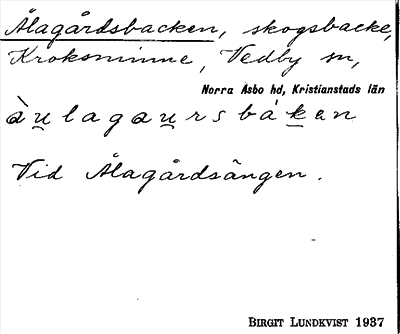 Ålagårdsbacken, skogsbacke,
Kroksminne, Vedby sn,
Norra Åsbo hd, Kristianstads län
àu̯lagau̯rsbàk̲en
Vid Ålagårdsängen.
BIRGIT LUNDKVIST 1937